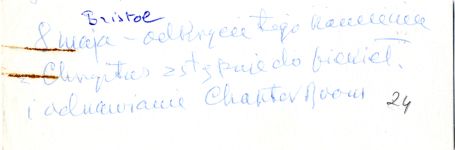 Bristol
8 maja - odkrycie tego kamienia
Chrystus zstępuje do piekieł.
i odnawianie Chapter Room
24